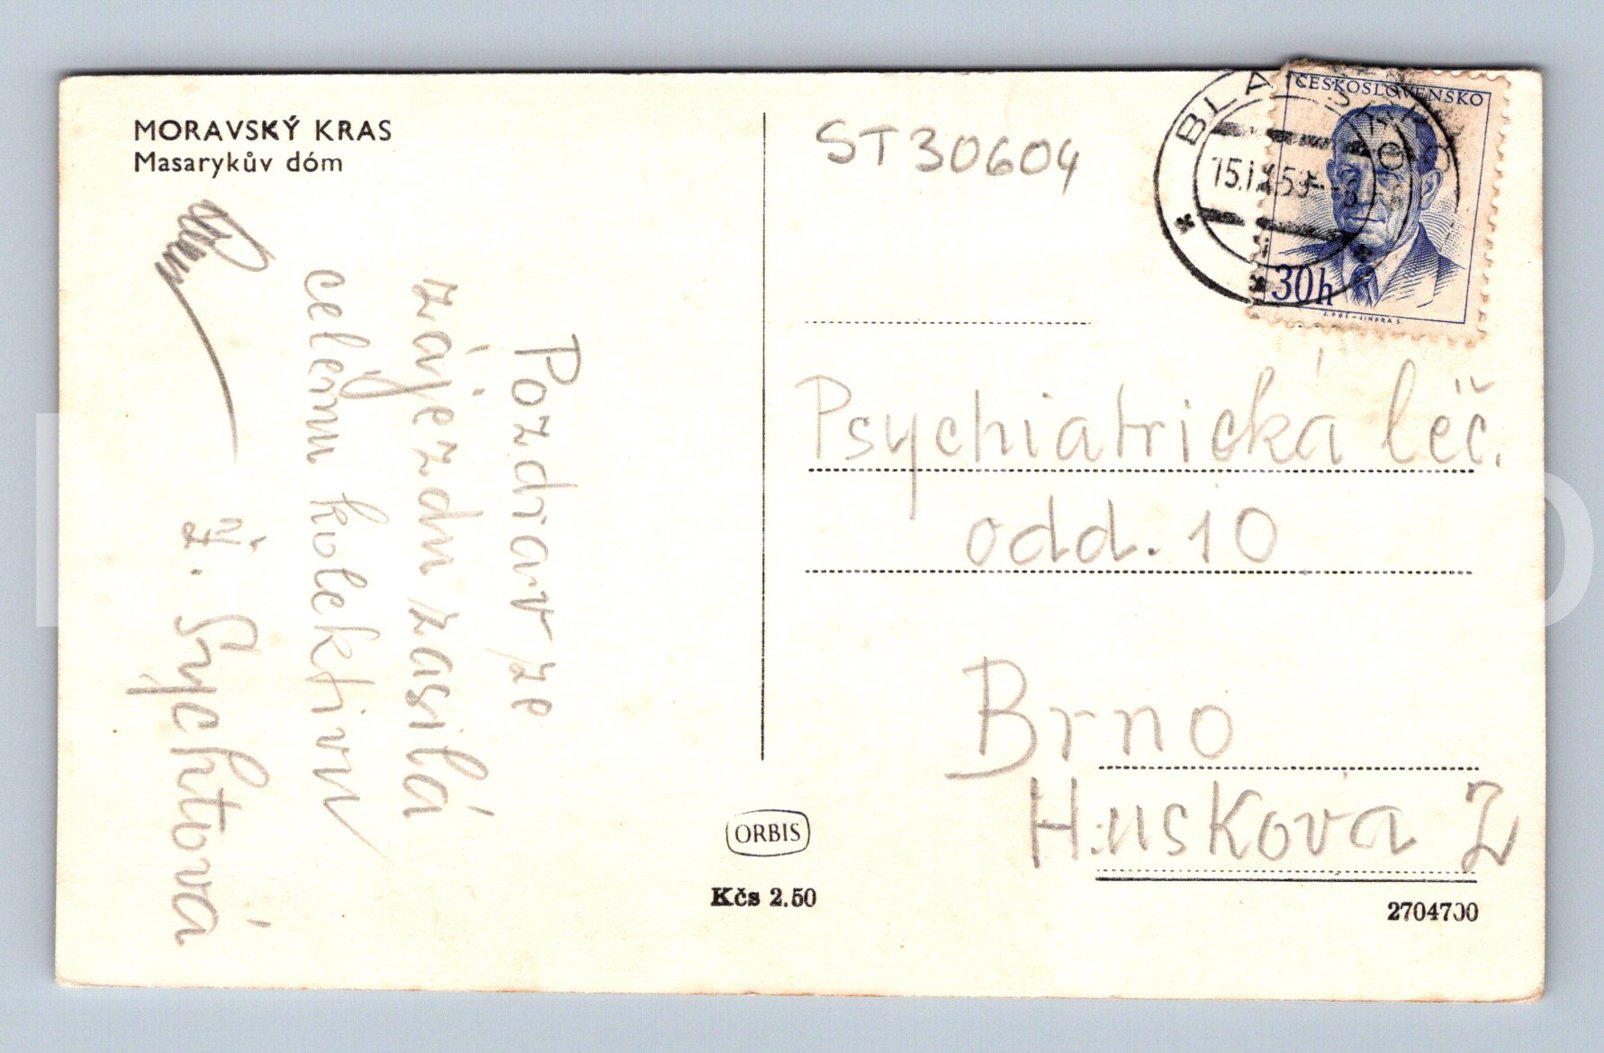 MORAVSKÝ KRAS
Masarykův dóm
Pozdrav ze
zájezdu zasílá
celému kolektivu
Ž. Sychtová
ST30604
ČESKOSLOVENSKO
30h
BLANSKO
15.IX.5
Psychiatrická léč.
odd. 10
Brno
Huskova 2
ORBIS
Kčs 2.50
2704700